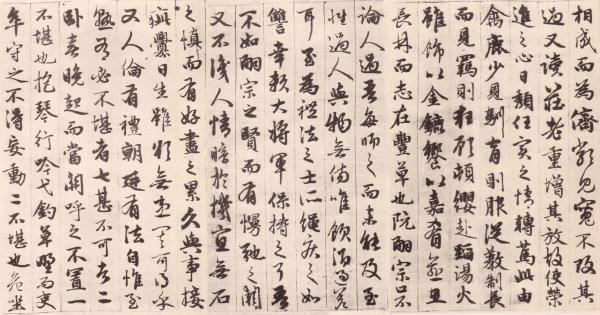 相成而為儕類見寬不攻其
過又讀莊老重增其放故使榮
進之心日頹任實之情轉篤此由
禽鹿少見馴育則服從教制長
而見羈則狂顧頓纓赴蹈湯火
雖飾以金鑣饗以嘉肴逾思
長林而志在豐草也阮嗣宗口不
論人過吾每師之而未能及至
性過人與物無傷唯飲酒過差
耳至為禮法之士所繩疾之如
讎幸賴大將軍保持之耳吾
不如嗣宗之賢而有慢弛之闕
又不識人情暗於機宜無石
之慎而有好盡之累久與事接
疵釁日生雖欲無患其可得乎
又人倫有禮朝廷有法自惟至
熟有必不堪者七甚不可者二
臥喜晚起而當關呼之不置一
不堪也抱琴行吟弋釣草野而吏
卒守之不得妄動二不堪也危坐